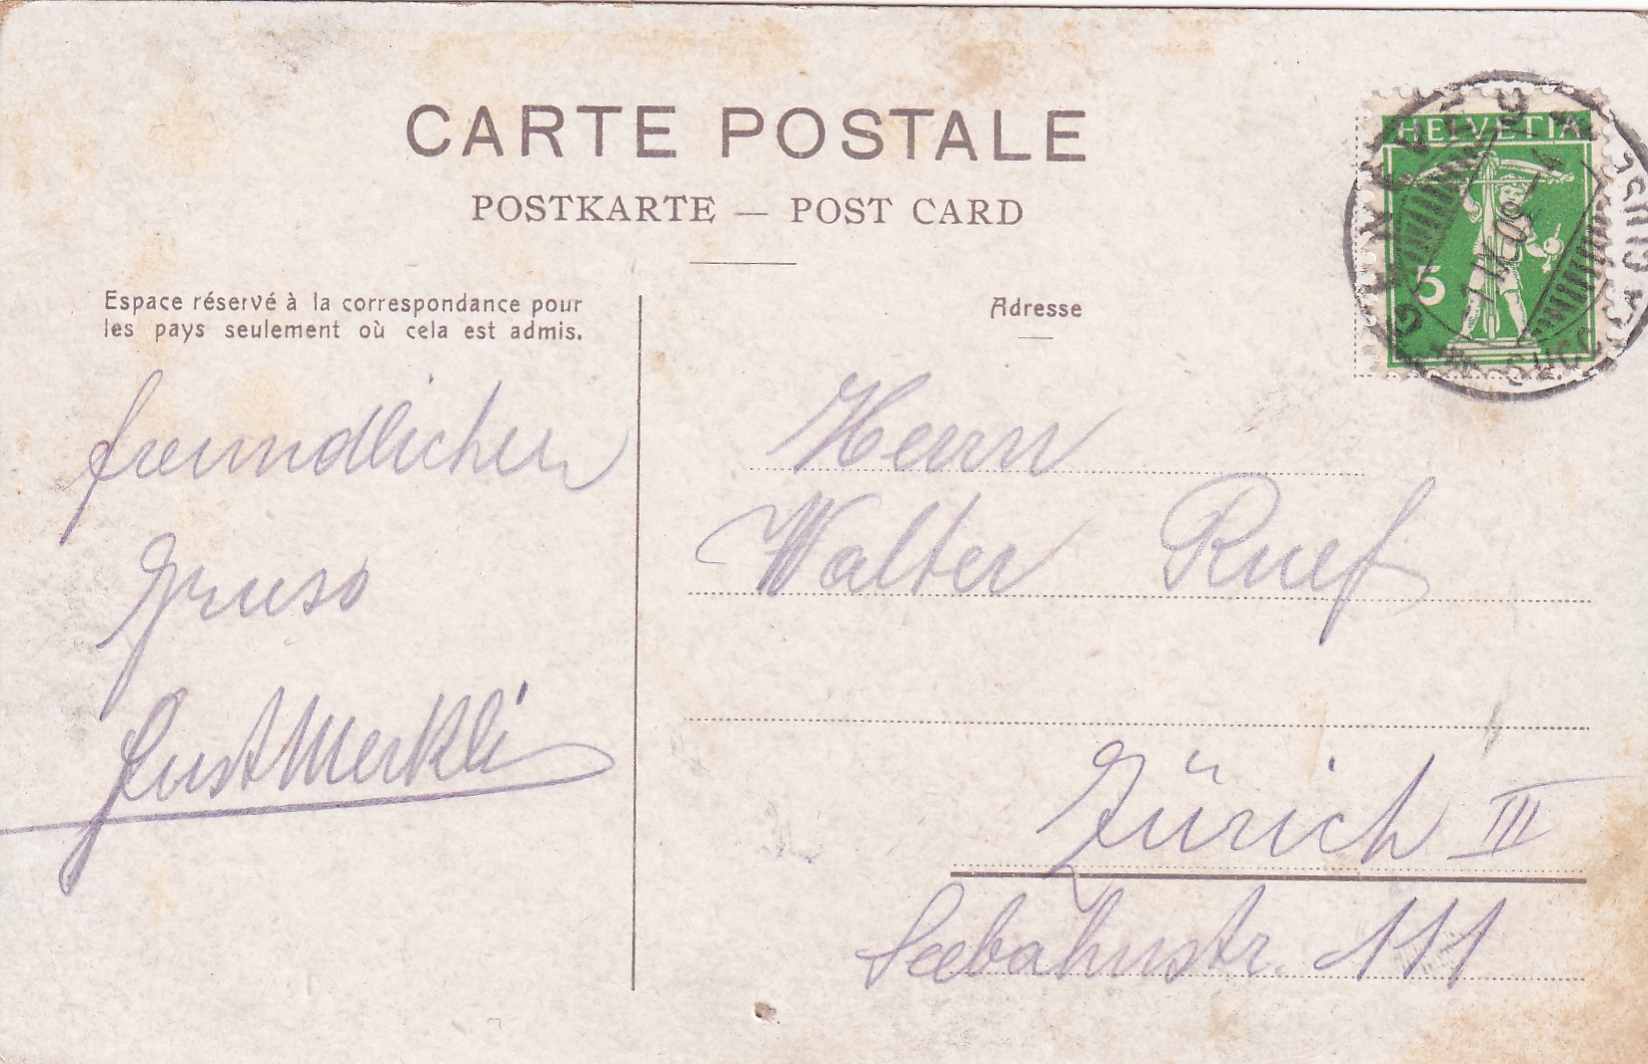 CARTE POSTALE
POSTKARTE — POST CARD
Espace réservé à la correspondance pour
les pays seulement où cela est admis.
Adresse
HELVETIA
5
freundlichen
Gruss
Merkli
Herrn
Walter Ruef
Zürich III
Seebahnstr. 111